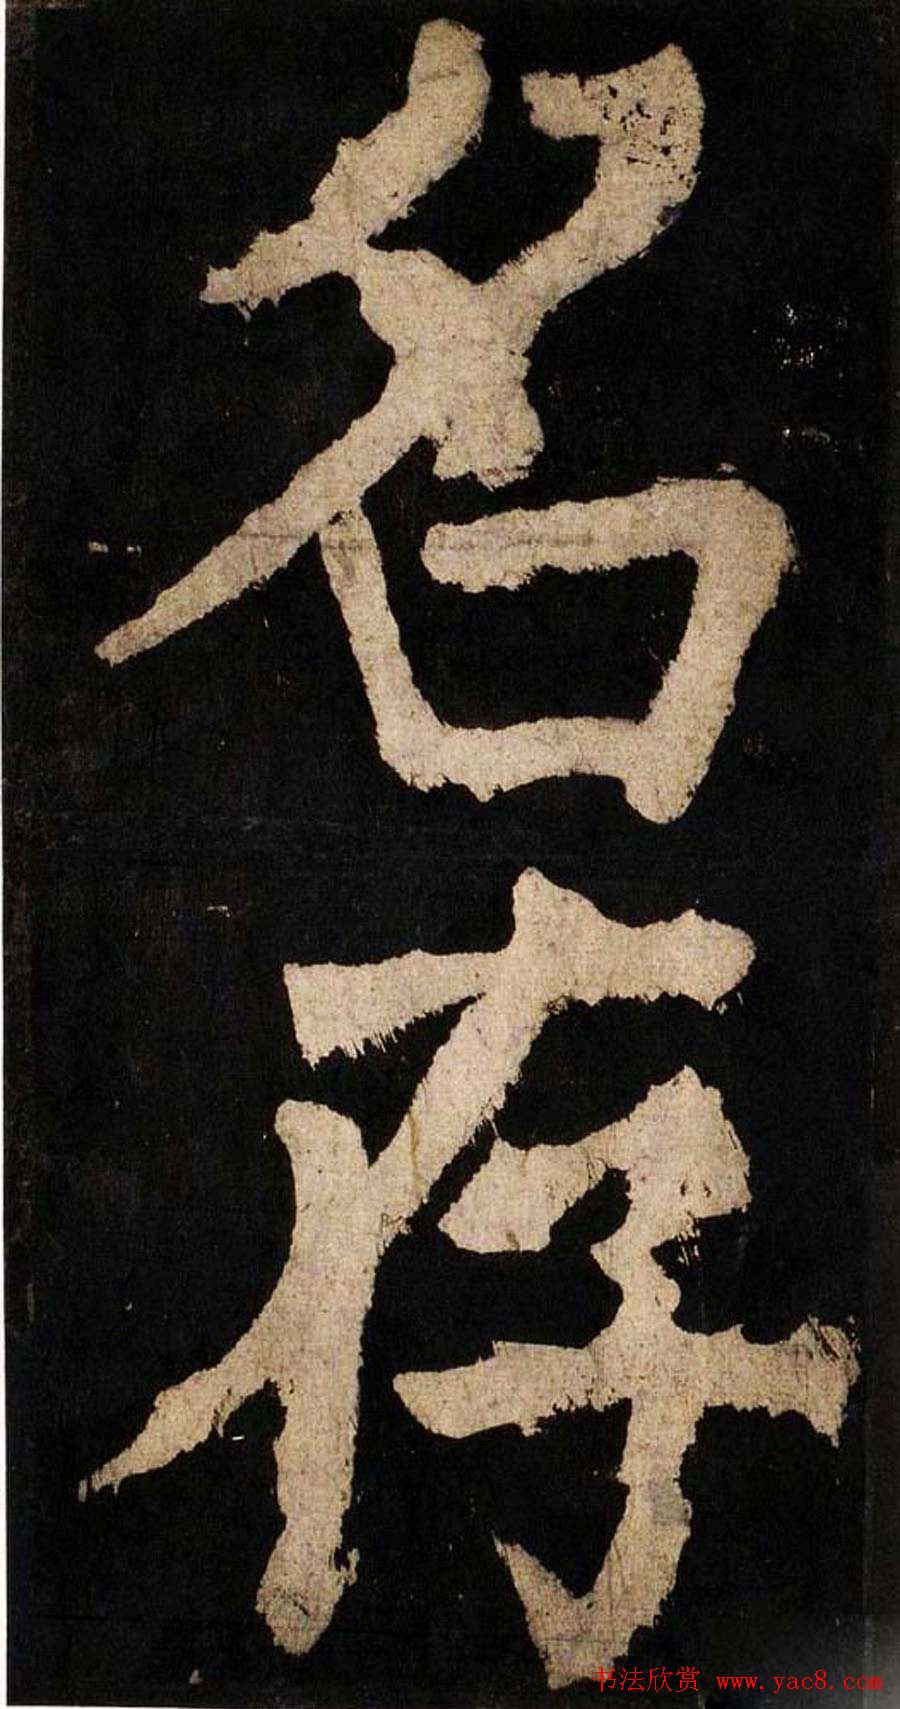 名存
书法欣赏 www.yac8.com